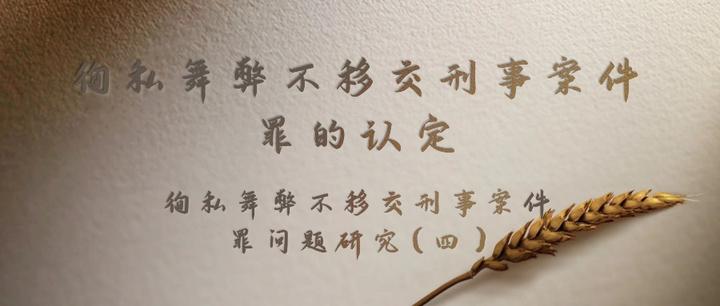 徇私舞弊不移交刑事案件
罪的认定
徇私舞弊不移交刑事案件
罪问题研究(四)